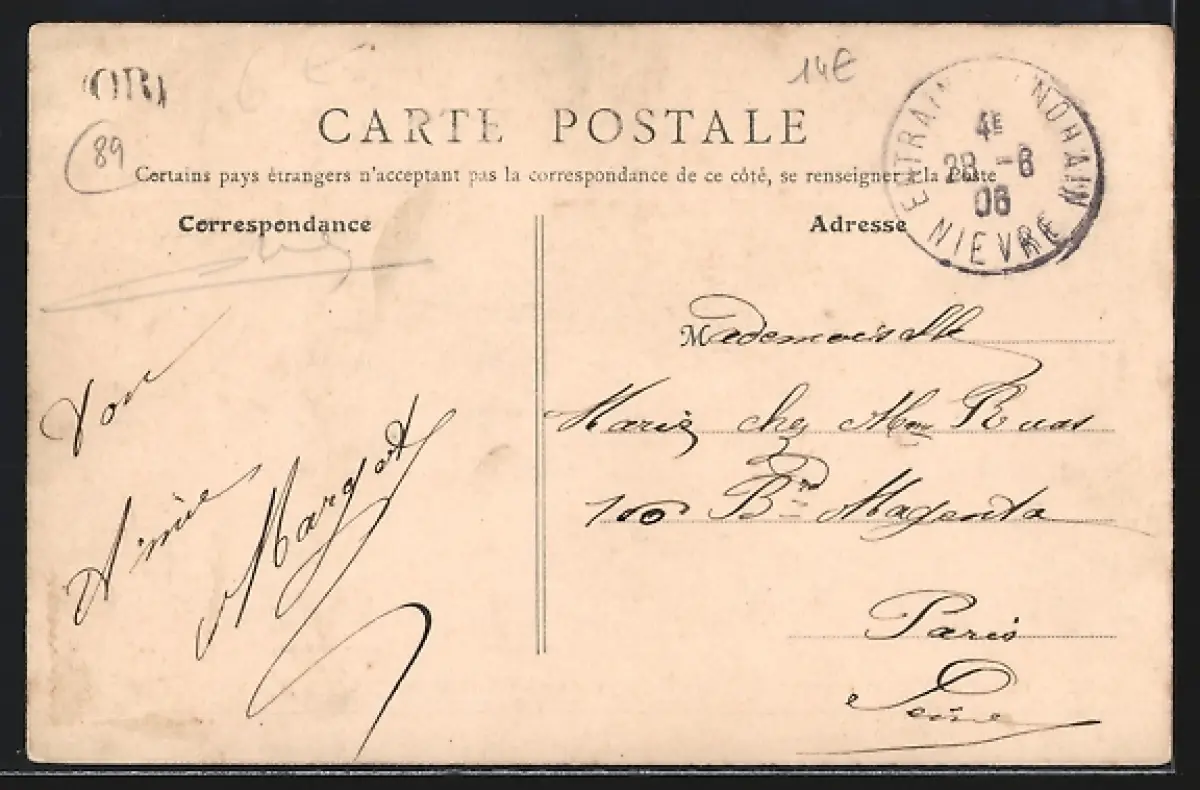 OR
14€
89
CARTE POSTALE
Certains pays étrangers n'acceptant pas la correspondance de ce côté, se renseigner à la Poste
ENTRAIN NOHAIN
4E
28 -6
06
NIEVRE
Correspondance
Adresse
Mademoiselle
Marie chez Mme Ruas
100 Bd Magenta
Paris
Seine
Ton
Amie
Margot